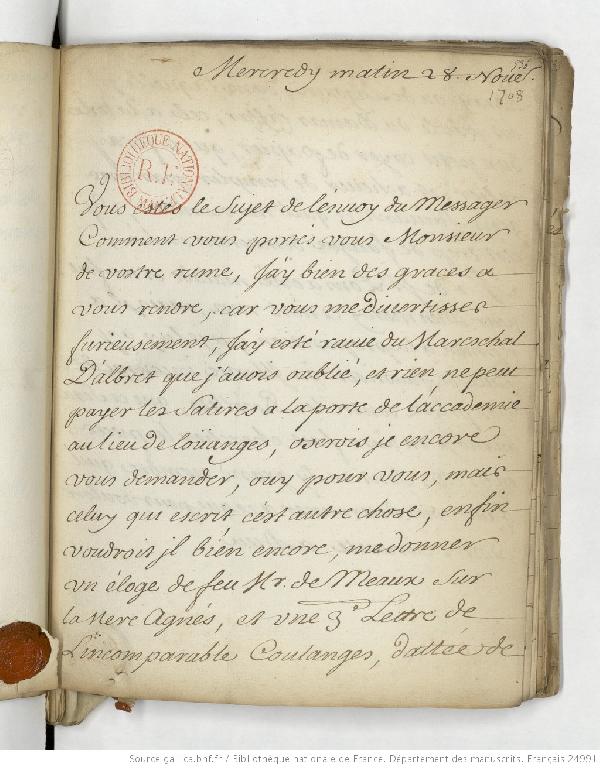 Mercredy matin 28 Nouel.
1708
BIBLIOTHEQUE NATIONALE
R.F.
Vous estes le Sujet de lenuoy du Messager
Comment vous portés vous Monsieur
de vostre rume, J'ay bien des graces a
vous rendre, car vous me diuertissés
furieusement, J'ay esté rauie du Mareschal
D'albret que j'auois oublié, et rien ne peut
payer les Satires a la porte de l'accademie
au lieu de loüanges, oserois je encore
vous demander, ouy pour vous, mais
celuy qui escrit c'est autre chose, enfin
voudroit jl bien encore, me donner
vn éloge de feu Mr. de Meaux sur
la Mere Agnés, et vne 3e Lettre de
L'incomparable Coulanges, dattée de
Source gallica.bnf.fr / Bibliothèque nationale de France. Département des manuscrits. Français 24991